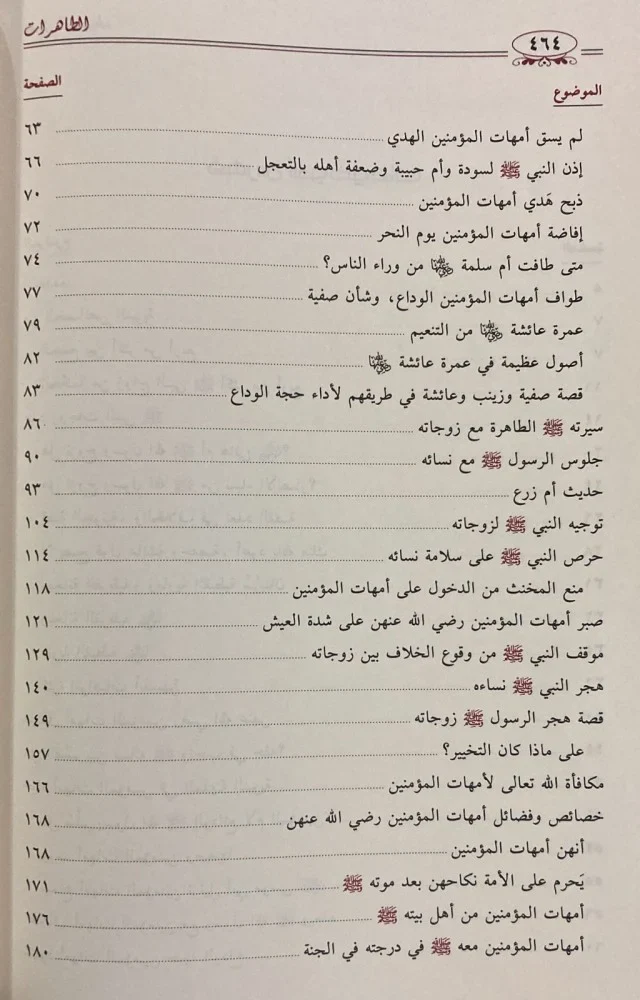 الطاهرات
٤٦٤
الموضوع الصفحة
لم يسق أمهات المؤمنين الهدي ٦٣
إذن النبي ﷺ لسودة وأم حبيبة وضعفة أهله بالتعجل ٦٦
ذبح هَدي أمهات المؤمنين ٧٠
إفاضة أمهات المؤمنين يوم النحر ٧٢
متى طافت أم سلمة رضي الله عنها من وراء الناس؟ ٧٤
طواف أمهات المؤمنين الوداع، وشأن صفية ٧٧
عمرة عائشة رضي الله عنها من التنعيم ٧٩
أصول عظيمة في عمرة عائشة رضي الله عنها ٨٢
قصة صفية وزينب وعائشة في طريقهم لأداء حجة الوداع ٨٣
سيرته ﷺ الطاهرة مع زوجاته ٨٦
جلوس الرسول ﷺ مع نسائه ٩٠
حديث أم زرع ٩٣
توجيه النبي ﷺ لزوجاته ١٠٤
حرص النبي ﷺ على سلامة نسائه ١١٤
منع المخنث من الدخول على أمهات المؤمنين ١١٨
صبر أمهات المؤمنين رضي الله عنهن على شدة العيش ١٢١
موقف النبي ﷺ من وقوع الخلاف بين زوجاته ١٢٩
هجر النبي ﷺ نساءه ١٤٠
قصة هجر الرسول ﷺ زوجاته ١٤٩
على ماذا كان التخيير؟ ١٥٧
مكافأة الله تعالى لأمهات المؤمنين ١٦٦
خصائص وفضائل أمهات المؤمنين رضي الله عنهن ١٦٨
أنهن أمهات المؤمنين ١٦٨
يَحرم على الأمة نكاحهن بعد موته ﷺ ١٧١
أمهات المؤمنين من أهل بيته ﷺ ١٧٦
أمهات المؤمنين معه ﷺ في درجته في الجنة ١٨٠